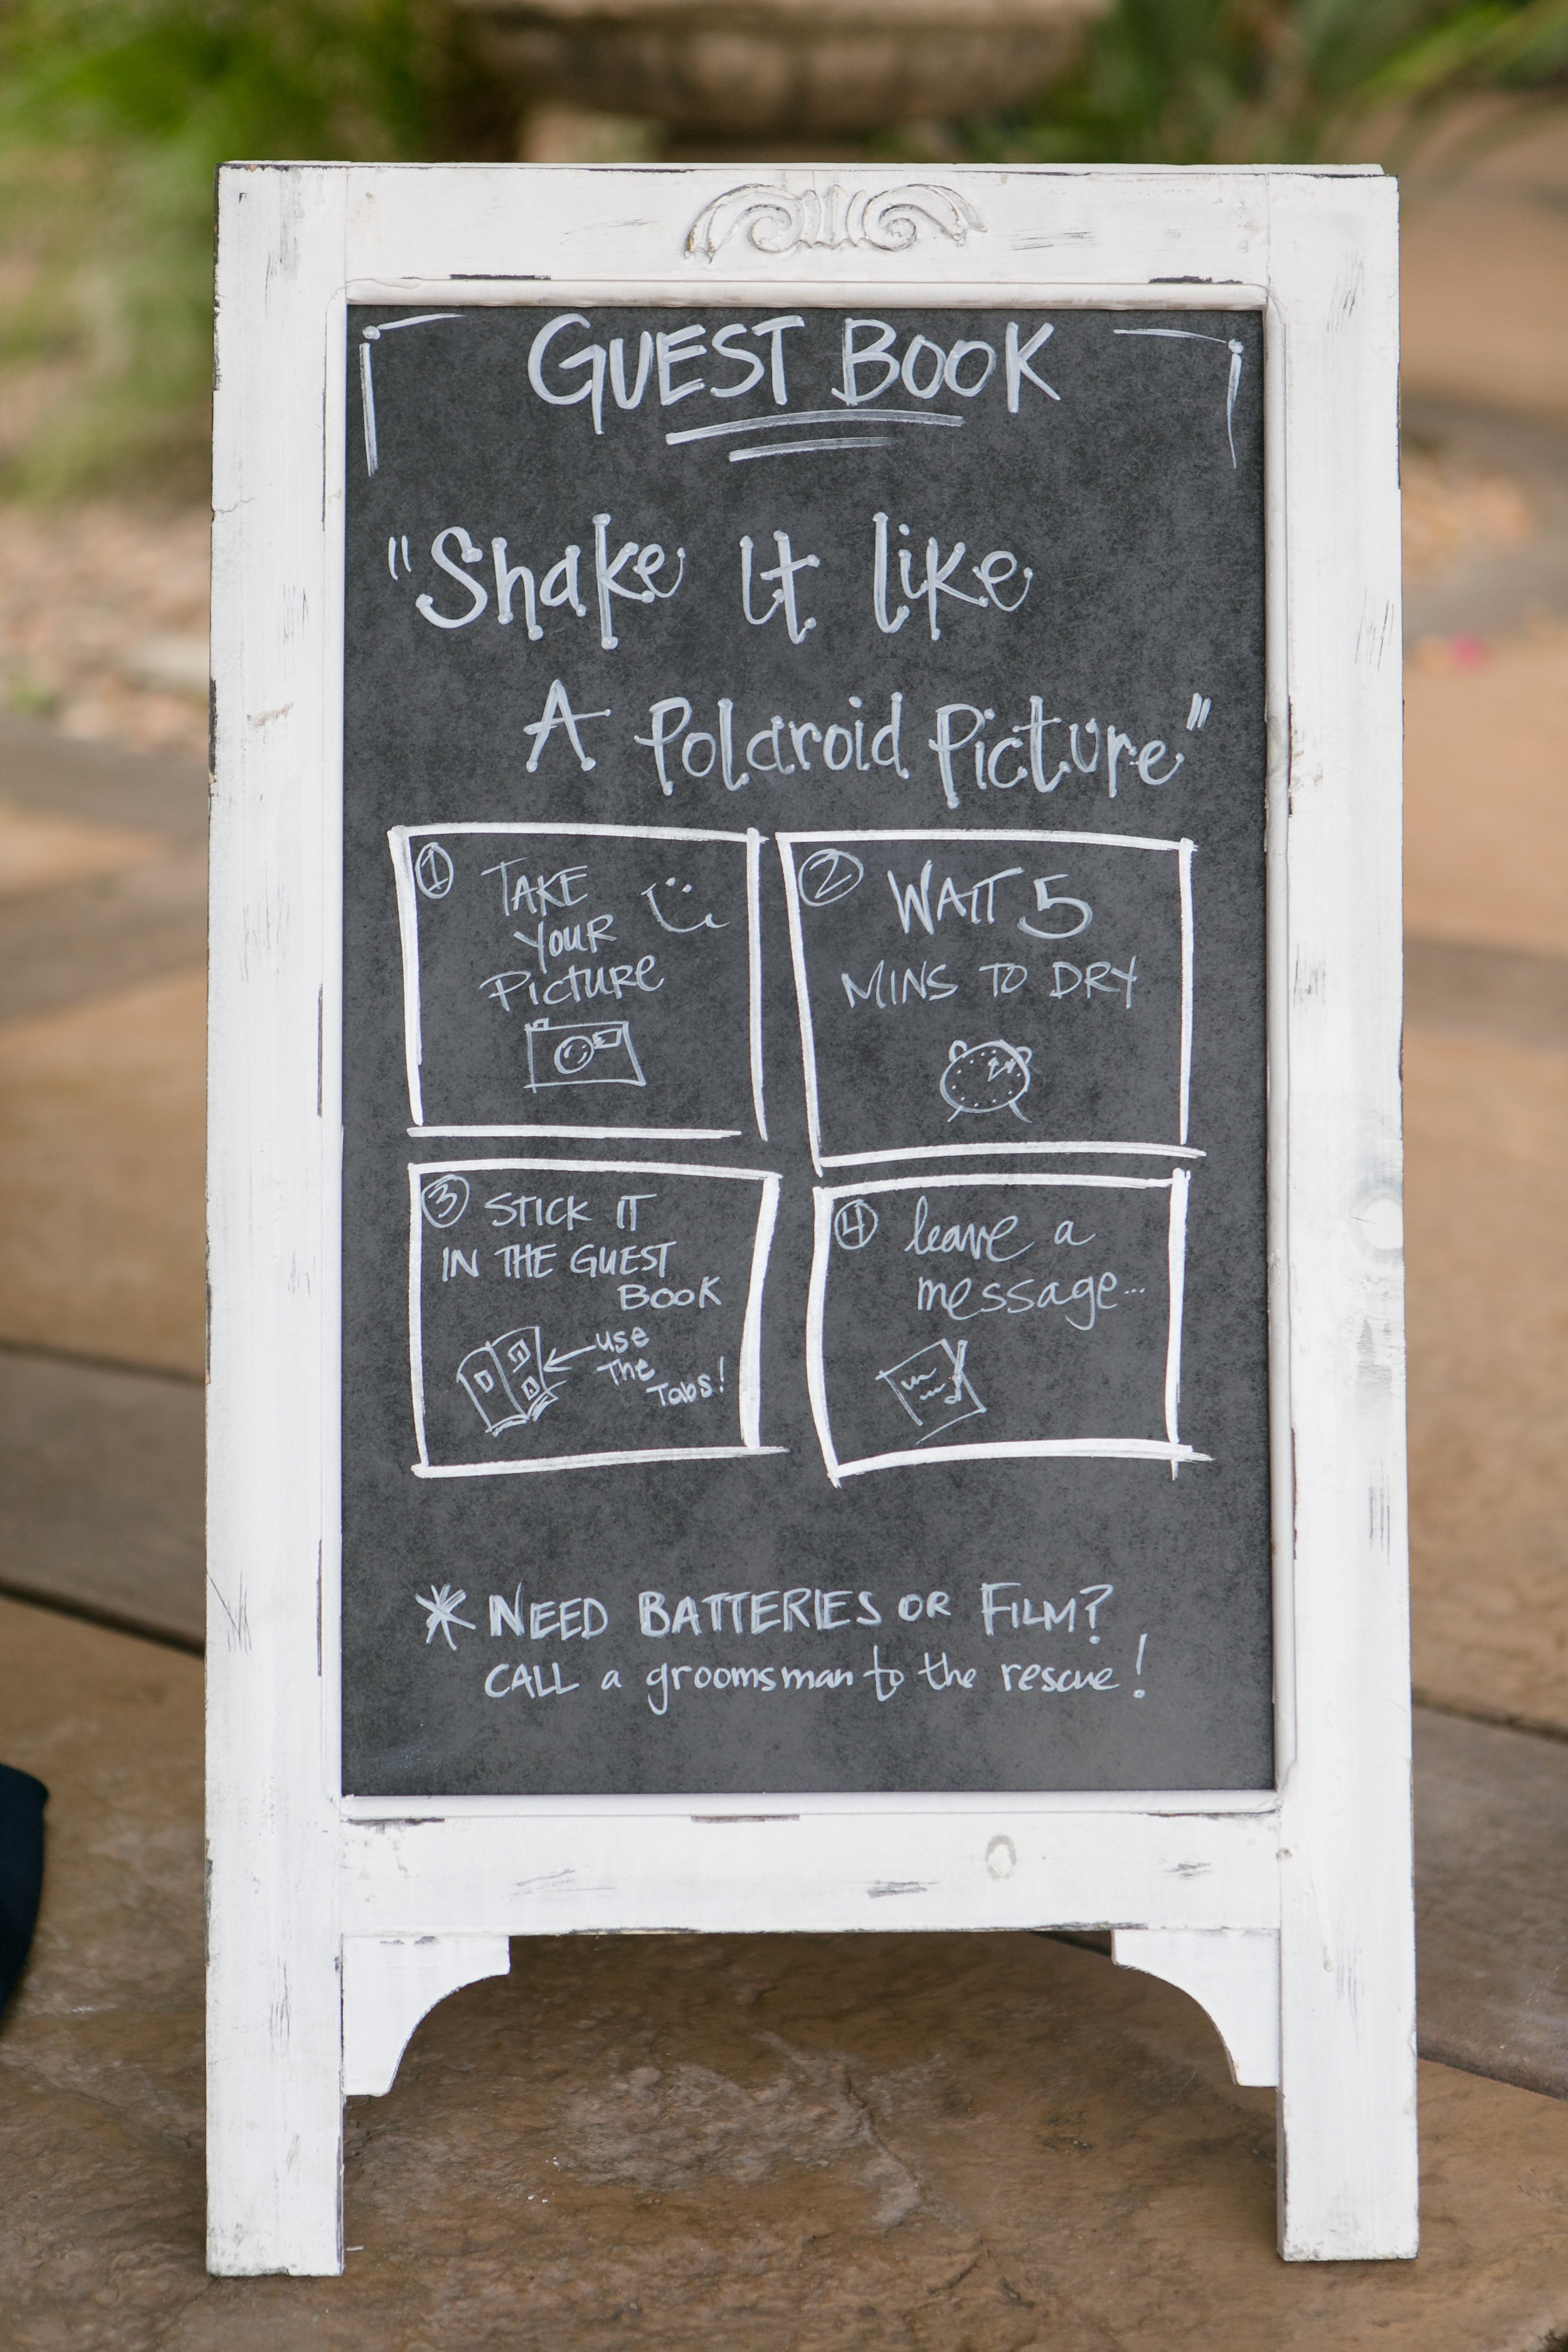 GUEST BOOK
"Shake It like
A Polaroid Picture"
1 TAKE
YOUR
PICTURE
2 WAIT 5
MINS TO DRY
3 STICK IT
IN THE GUEST
BOOK
use
The
Tabs!
4 leave a
message...
* NEED BATTERIES OR FILM?
CALL a groomsman to the rescue!